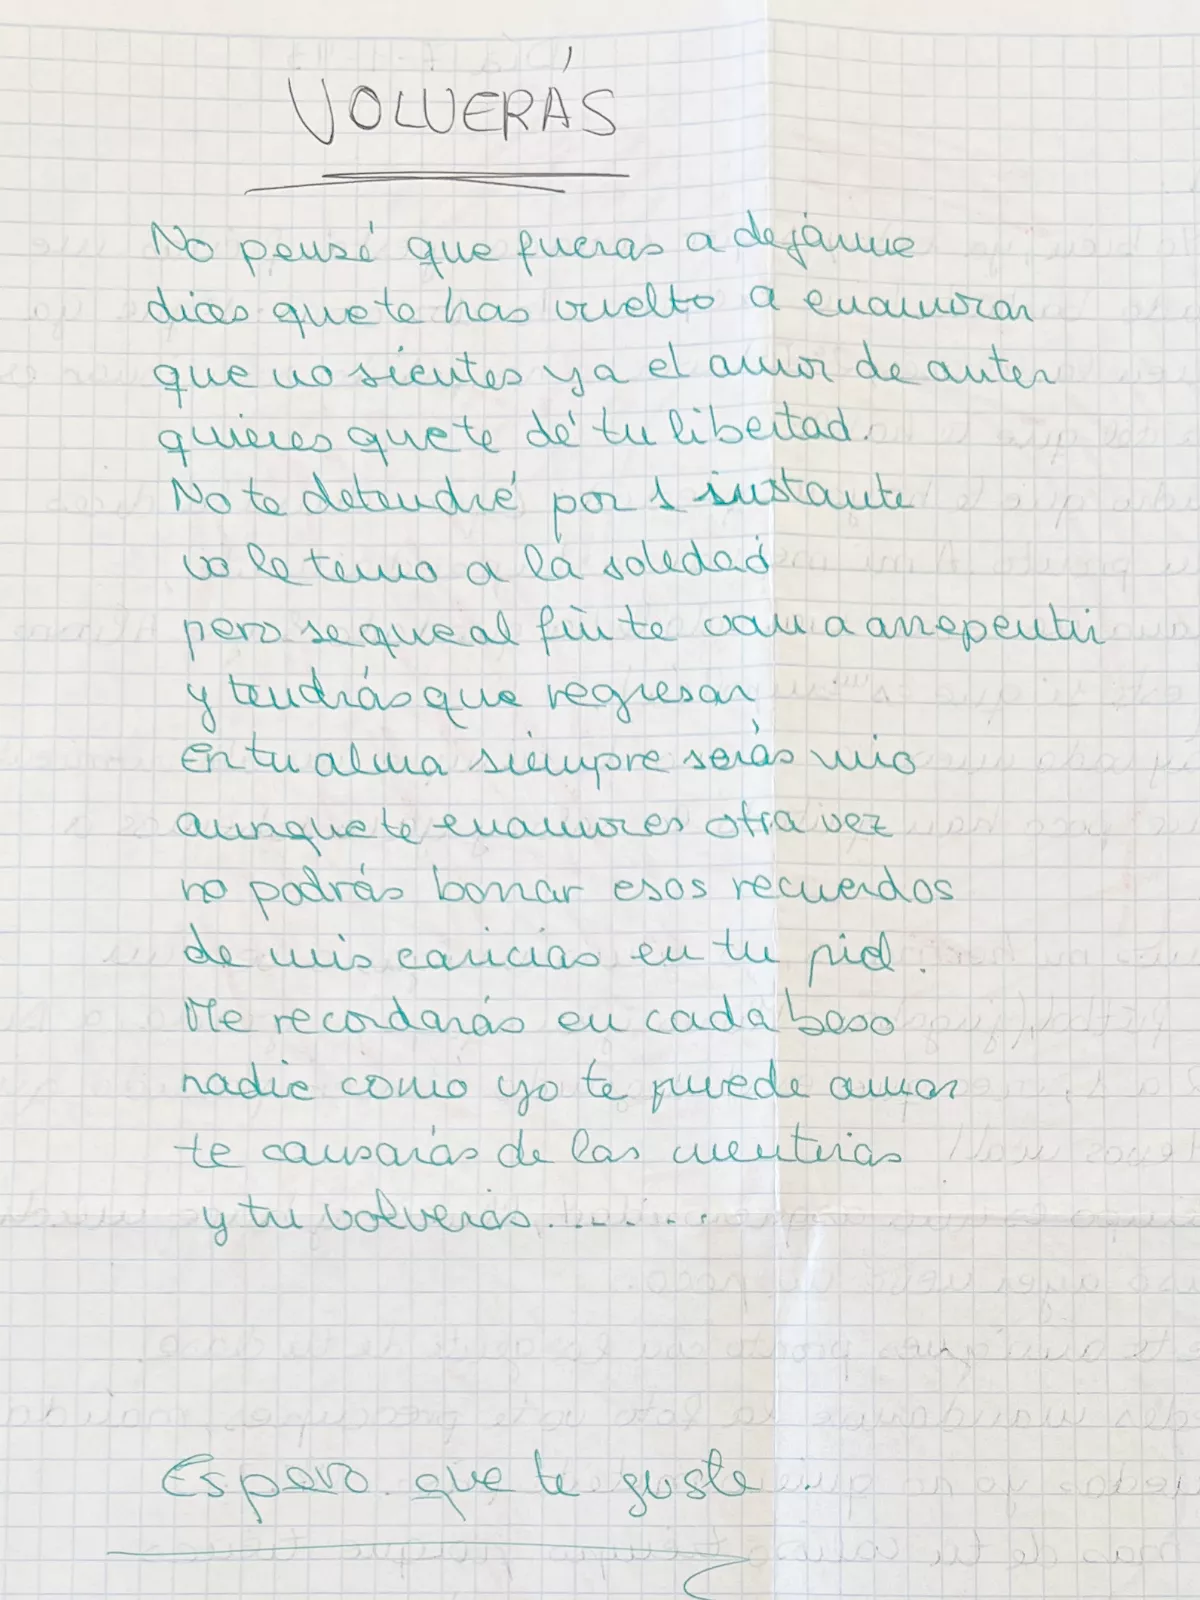 VOLVERÁS
No pensé que fueras a dejárme
dices que te has vuelto a enamorar
que no sientes ya el amor de antes
quieres que te dé tu libertad.
No te detendré por 1 instante
no le temo a la soledad
pero se que al fin te van a arrepentir
y tendrás que regresar
En tu alma siempre serás mio
aunque te enamores otra vez
no podrás borrar esos recuerdos
de mis caricias en tu piel.
Me recordarás en cada beso
nadie como yo te puede amar
te cansarás de las mentiras
y tu volverás.......
Espero que te guste.